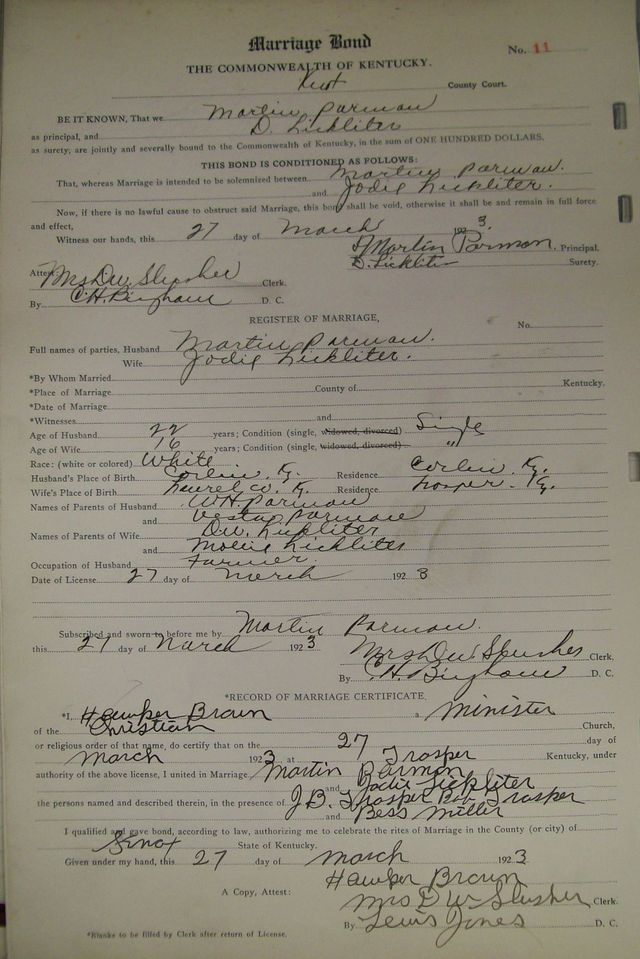 Marriage Bond
No. 11
THE COMMONWEALTH OF KENTUCKY.
Knox County Court.
BE IT KNOWN, That we Martin Parman
as principal, and D. Lickliter
as surety, are jointly and severally bound to the Commonwealth of Kentucky, in the sum of ONE HUNDRED DOLLARS.
THIS BOND IS CONDITIONED AS FOLLOWS:
That, whereas Marriage is intended to be solemnized between Martin Parman.
and Jodie Lickliter.
Now, if there is no lawful cause to obstruct said Marriage, this bond shall be void, otherwise it shall be and remain in full force
and effect,
Witness our hands, this 27 day of March 1923.
Martin Parman. Principal.
D. Lickliter Surety.
Attest Mrs D W Slusher Clerk.
By C. H. Bingham D. C.
REGISTER OF MARRIAGE,
No.
Full names of parties, Husband Martin Parman.
Wife Jodie Lickliter.
*By Whom Married
*Place of Marriage County of Kentucky.
*Date of Marriage
*Witnesses and
Age of Husband 22 years; Condition (single, widowed, divorced) Single
Age of Wife 16 years; Condition (single, widowed, divorced) "
Race: (white or colored) White
Husband's Place of Birth Corbin, Ky. Residence Corbin, Ky.
Wife's Place of Birth Laurel Co. Ky. Residence Trosper, Ky.
Names of Parents of Husband W H. Parman
and Parman
Names of Parents of Wife D. W. Lickliter
and Mollie Lickliter
Occupation of Husband Farmer
Date of License 27 day of March 1923
Subscribed and sworn to before me by Martin Parman.
this 27 day of March 1923
Mrs D W Slusher Clerk,
By C. H. Bingham D. C.
*RECORD OF MARRIAGE CERTIFICATE.
*I, Hawker Brown a Minister
of the Christian Church,
or religious order of that name, do certify that on the 27 day of
March 1923, at Trosper Kentucky, under
authority of the above license, I united in Marriage Martin Parman
and Jodie Lickliter
the persons named and described therein, in the presence of J. B. Trosper Bob Trosper
and Bess Miller
I qualified and gave bond, according to law, authorizing me to celebrate the rites of Marriage in the County (or city) of
Knox State of Kentucky.
Given under my hand, this 27 day of March 1923
Hawker Brown
A Copy, Attest: Mrs D W Slusher Clerk.
By Lewis Jones D. C.
*Blanks to be filled by Clerk after return of License.